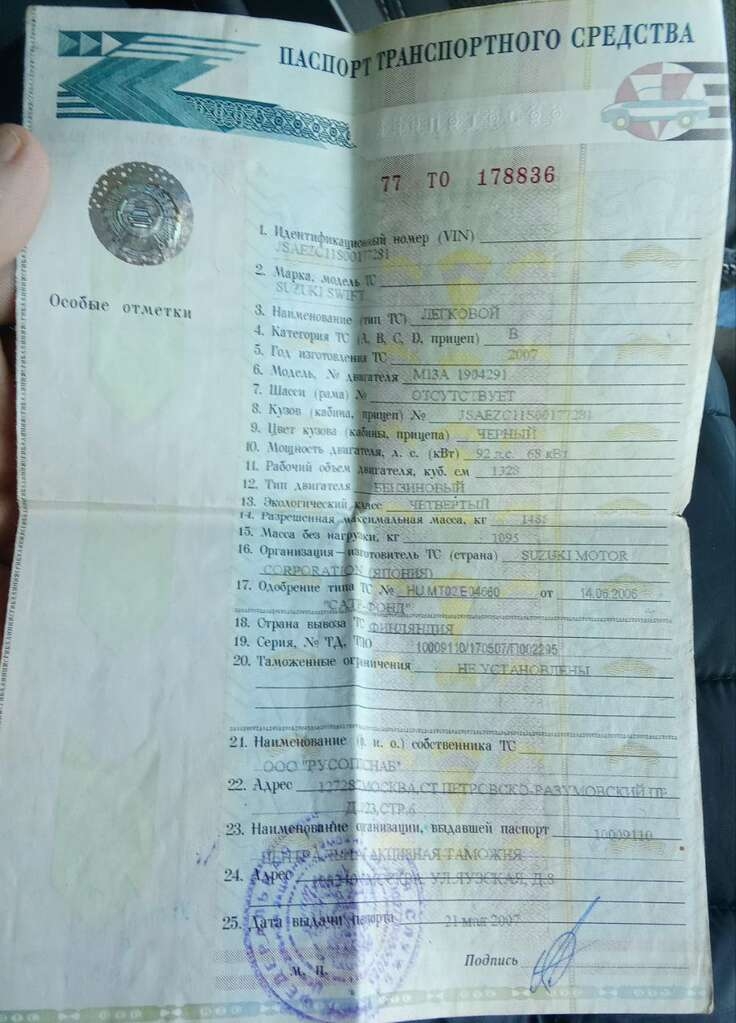 ПАСПОРТ ТРАНСПОРТНОГО СРЕДСТВА
77 ТО 178836
Особые отметки
1. Идентификационный номер (VIN)
JSAEZC11S00177281
2. Марка, модель ТС
SUZUKI SWIFT
3. Наименование (тип ТС) ЛЕГКОВОЙ
4. Категория ТС (A, B, C, D, прицеп) В
5. Год изготовления ТС 2007
6. Модель, № двигателя M13A 1904291
7. Шасси (рама) № ОТСУТСТВУЕТ
8. Кузов (кабина, прицеп) № JSAEZC11S00177281
9. Цвет кузова (кабины, прицепа) ЧЕРНЫЙ
10. Мощность двигателя, л. с. (кВт) 92 л.с. 68 кВт
11. Рабочий объем двигателя, куб. см 1328
12. Тип двигателя БЕНЗИНОВЫЙ
13. Экологический класс ЧЕТВЕРТЫЙ
14. Разрешенная максимальная масса, кг 1485
15. Масса без нагрузки, кг 1095
16. Организация–изготовитель ТС (страна) SUZUKI MOTOR
CORPORATION (ЯПОНИЯ)
17. Одобрение типа ТС № HU.MT02.E04660 от 14.06.2006
"САТР-ФОНД"
18. Страна вывоза ТС ФИНЛЯНДИЯ
19. Серия, № ТД, ТПО 10009110/170507/П002295
20. Таможенные ограничения НЕ УСТАНОВЛЕНЫ
21. Наименование (ф. и. о.) собственника ТС
ООО "РУСОПТСНАБ"
22. Адрес МОСКВА,СТ.ПЕТРОВСКО-РАЗУМОВСКИЙ ПР
Д.23,СТР.6
23. Наименование организации, выдавшей паспорт 10009110
ЦЕНТРАЛЬНАЯ АКЦИЗНАЯ ТАМОЖНЯ
24. Адрес УЛ.ЯУЗСКАЯ, Д.8
25. Дата выдачи паспорта 21 мая 2007
М. П. Подпись